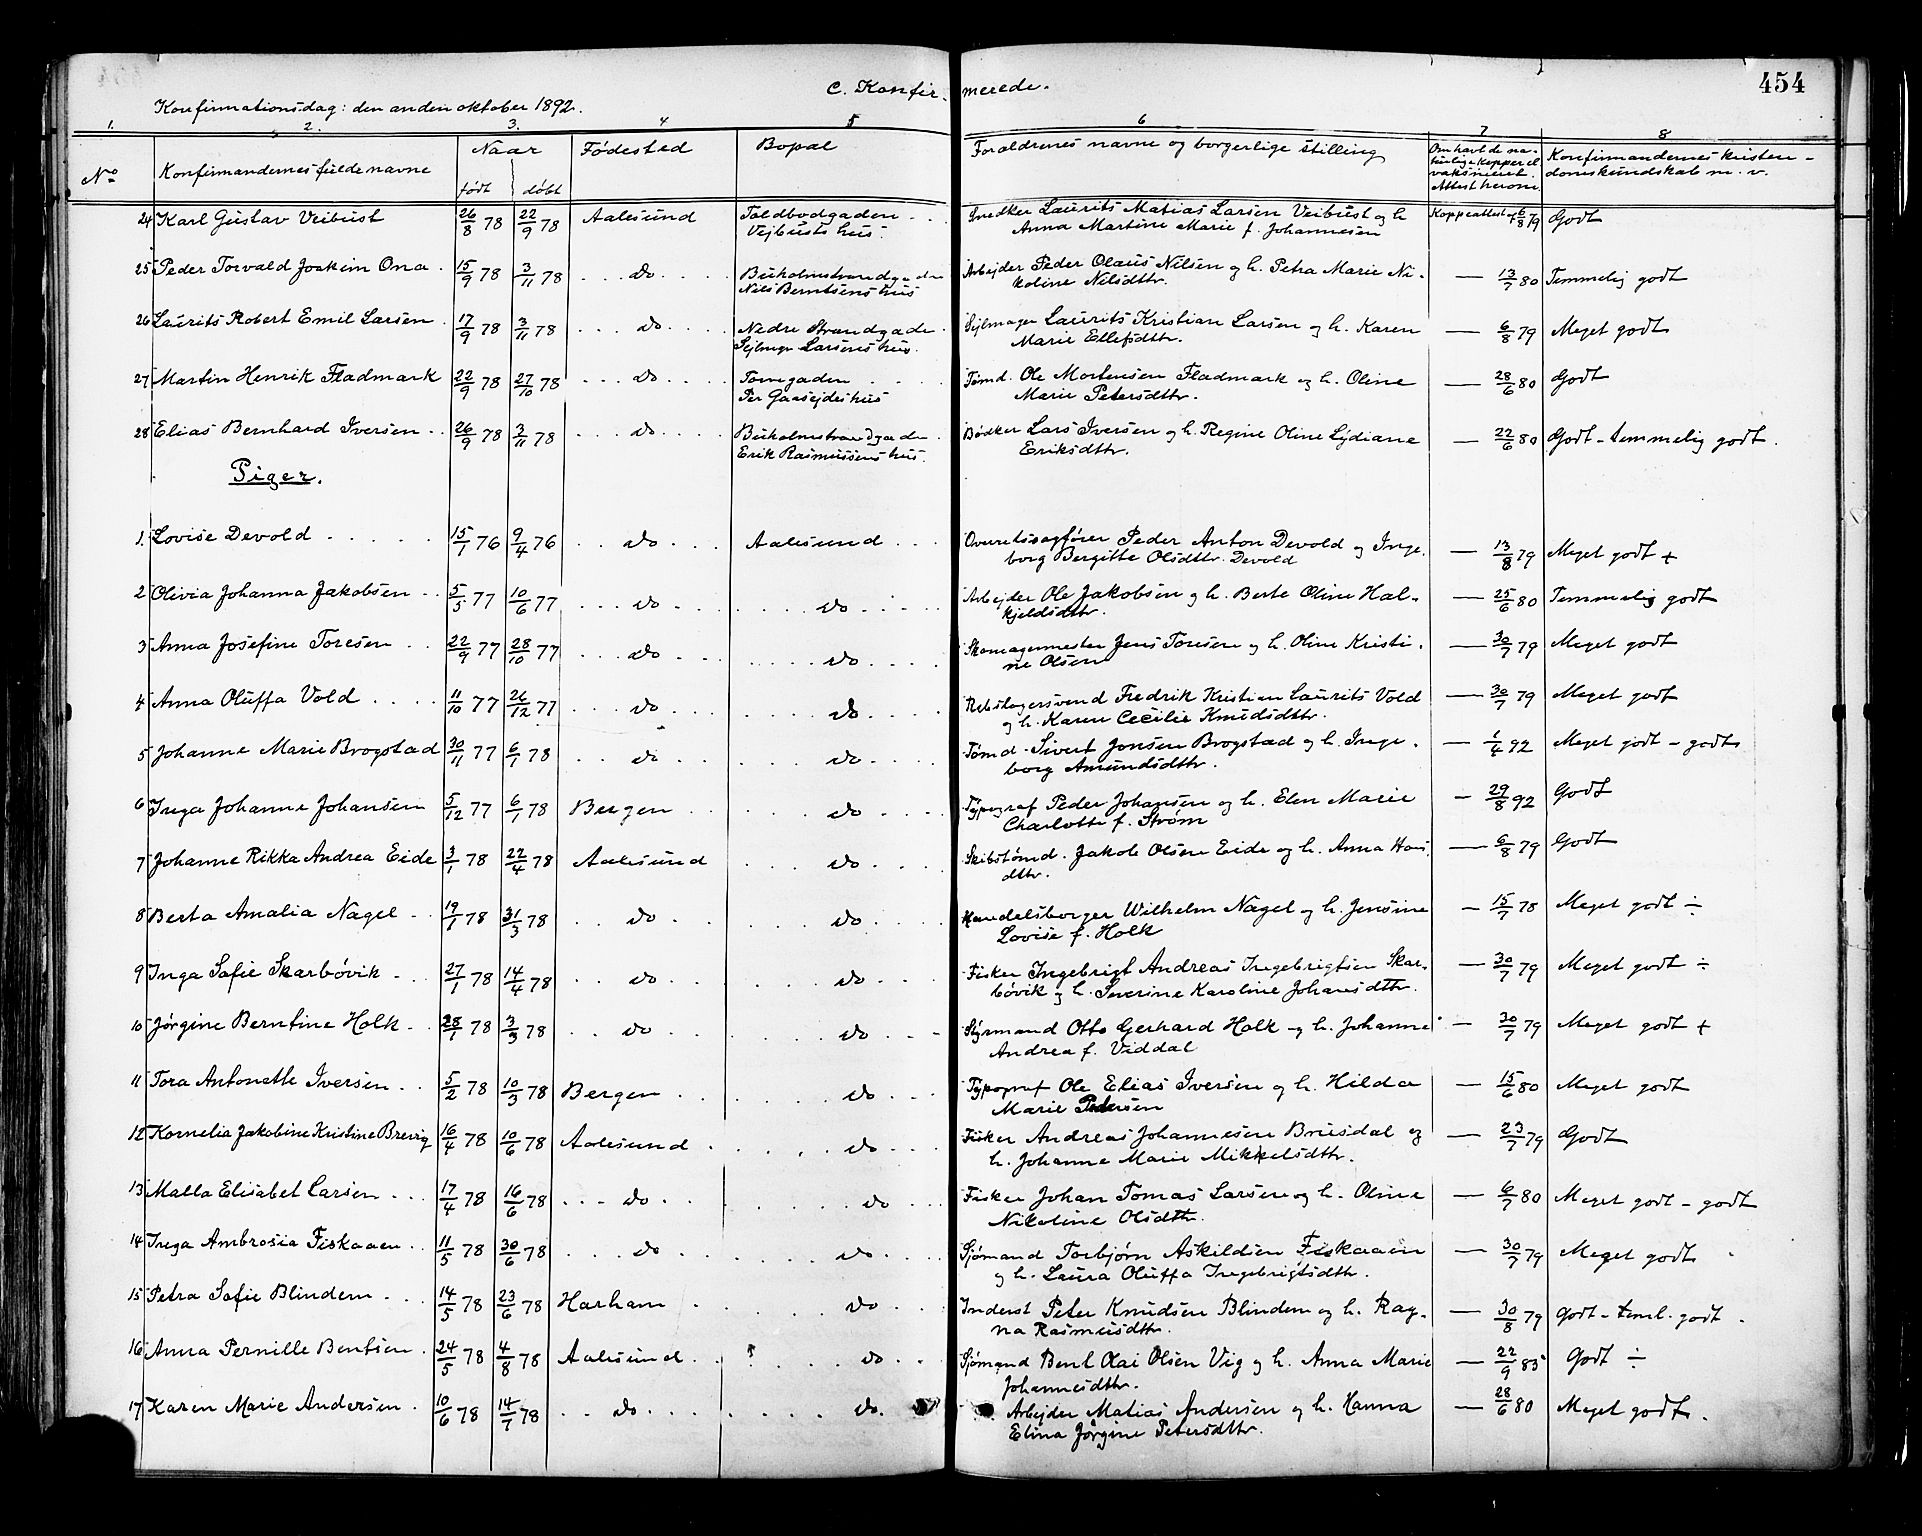 454
C. Konfirmerede.
Konfirmationsdag: den anden oktober 1892.
1. 2. 3. 4 5 6 7 8
No Konfirmandernes fulde navne Naar født døbt Fødested Bopæl Forældrenes navne og borgerlige stilling Om havt de naturlige kopper el. vaksineret. Attest herom Konfirmandernes kristendomskundskab m. v.
24 Karl Gustav Veibust 26/8 78 22/9 78 Aalesund Toldbodgaden Vejbusts hus. Snedker Laurits Matias Larsen Veibust og h. Anna Martine Marie f. Johannesen Koppeattest af 6/8 79 Godt
25 Peder Torvald Joakim Ona 15/9 78 3/11 78 do Buholmstrandgaden Nils Berntsens hus Arbejder Peder Olaus Nilsen og h. Petra Marie Nikoline Nilsdttr. — 13/7 80 Temmelig godt
26 Laurits Robert Emil Larsen 17/9 78 3/11 78 do Nedre Strandgade Sejlmager Larsens hus. Sejlmager Laurits Kristian Larsen og h. Karen Marie Ellefsdttr. — 6/8 79 Meget godt
27 Martin Henrik Fladmark 22/9 78 27/10 78 do Torvegaden Per Gaasejdes hus Tømd. Ole Mortensen Fladmark og h. Oline Marie Petersdttr. — 28/6 80 Godt
28 Elias Bernhard Iversen 26/9 78 3/11 78 do Buholmstrandgaden Erik Rasmussens hus. Bødker Lars Iversen og h. Regine Oline Lydiane Eriksdttr. — 22/6 80 Godt - temmelig godt.
Piger.
1. Lovise Devold 15/1 76 9/4 76 do Aalesund Overretssagfører Peder Anton Devold og Ingeborg Bergitte Olsdttr. Devold — 13/8 79 Meget godt +
2 Olivia Johanna Jakobsen 5/5 77 10/6 77 do do Arbejder Ole Jakobsen og h. Berte Oline Halkjeldsdttr. — 25/6 80 Temmelig godt
3 Anna Josefine Toresen 22/9 77 28/10 77 do do Skomagermester Jens Toresen og h. Oline Kristine Olsen — 30/7 79 Meget godt
4 Anna Oluffa Vold 11/10 77 26/12 77 do do Rebslagersvend Fredrik Kristian Laurits Vold og h. Karen Cecilie Knudsdttr. — 30/7 79 Meget godt
5 Johanne Marie Brogstad 30/11 77 6/1 78 do do Tømd. Sivert Jonsen Brogstad og h. Ingeborg Amundsdttr. — 1/4 92 Meget godt - godt
6 Inga Johanne Johansen 5/12 77 6/1 78 Bergen do Typograf Peder Johansen og h. Elen Marie Charlotte f. Strøm — 29/8 92 Godt
7 Johanne Rikka Andrea Eide 3/1 78 22/4 78 Aalesund do Skibstømd. Jakob Olsen Eide og h. Anna Hansdttr. — 6/8 79 Godt
8 Berta Amalia Nagel 19/1 78 31/3 78 do do Handelsborger Wilhelm Nagel og h. Jensine Lovise f. Holk — 15/7 78 Meget godt ÷
9 Inga Sofie Skarbøvik 27/1 78 14/4 78 do do Fisker Ingebrigt Andreas Ingebrigtsen Skarbøvik og h. Severine Karoline Johansdttr. — 30/7 79 Meget godt ÷
10 Jørgine Berntine Holk 28/1 78 3/3 78 do do Styrmand Otto Gerhard Holk og h. Johanne Andrea f. Viddal — 30/7 79 Meget godt +
11 Tora Antonette Iversen 5/2 78 10/3 78 Bergen do Typograf Ole Elias Iversen og h. Hilda Marie Pedersen — 15/6 80 Meget godt
12 Kornelia Jakobine Kristine Brevig 16/4 78 10/6 78 Aalesund do Fisker Andreas Johannesen Brusdal og h. Johanne Marie Mikkelsdttr. — 23/7 79 Godt
13 Malla Elisabet Larsen 17/4 78 16/6 78 do do Fisker Johan Tomas Larsen og h. Oline Nikoline Olsdttr. — 6/7 80 Meget godt - godt
14 Inga Ambrosia Fiskaaen 11/5 78 30/6 78 do do Sjømand Torbjørn Askildsen Fiskaaen og h. Laura Oluffa Ingebrigtsdttr. — 30/7 79 Meget godt
15 Petra Sofie Blindem 14/5 78 23/6 78 Harham do Inderst Peter Knudsen Blindem og h. Ragna Rasmusdttr. — 30/8 79 Godt - teml. godt.
16 Anna Pernille Bentsen 24/5 78 4/8 78 Aalesund do Sjømand Bent Olai Olsen Vig og h. Anna Marie Johannesdttr. — 22/9 85 Godt ÷
17 Karen Marie Andersen 10/6 78 14/7 78 do do. Arbejder Matias Andersen og h. Hanna Elina Jørgine Petersdttr. — 28/6 80 Meget godt.